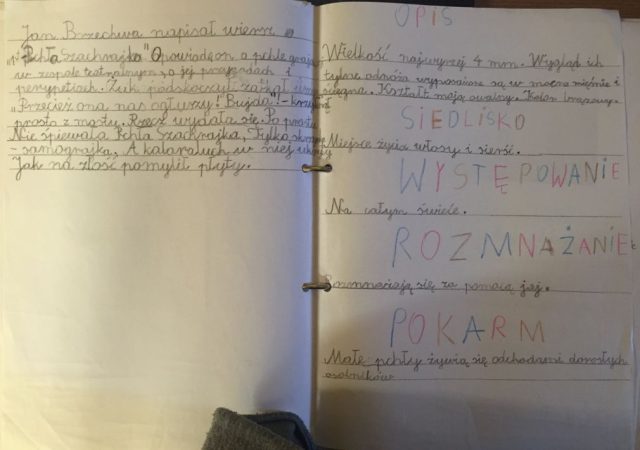 Jan Brzechwa napisał wiersz o
"Pchła Szachrajka" Opowiada on o pchle grającej
w zespole teatralnym, o jej przygodach i
perypetiach. Żuk podskoczył zaczął
"Przecież ona nas ogłuszy! Bujda!" - krzyknął
prosto z mostu. Rzecz wydała się. Po prostu
Nie śpiewała Pchła Szachrajka, Tylko skrzynka
- samograjka, A kalaraluch w niej ukryty
Jak na złość pomylił płyty.
OPIS
Wielkość najwyżej 4 mm. Wygląd ich
tylne odnóża wyposażone są w mocne mięśnie i
ścięgna. Kształt mają owalny. Kolor brązowy.
SIEDLISKO
Miejsce życia włosy i sierść.
WYSTĘPOWANIE
Na całym świecie.
ROZMNAŻANIE
Rozmnażają się za pomocą jaj.
POKARM
Małe pchły żywią się odchodami dorosłych
osobników